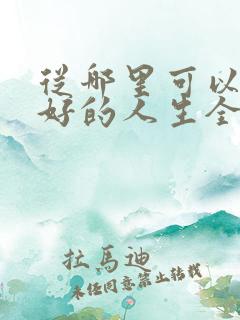 從哪里可以
好的人生全
拉馬迪
未经同意禁止转载